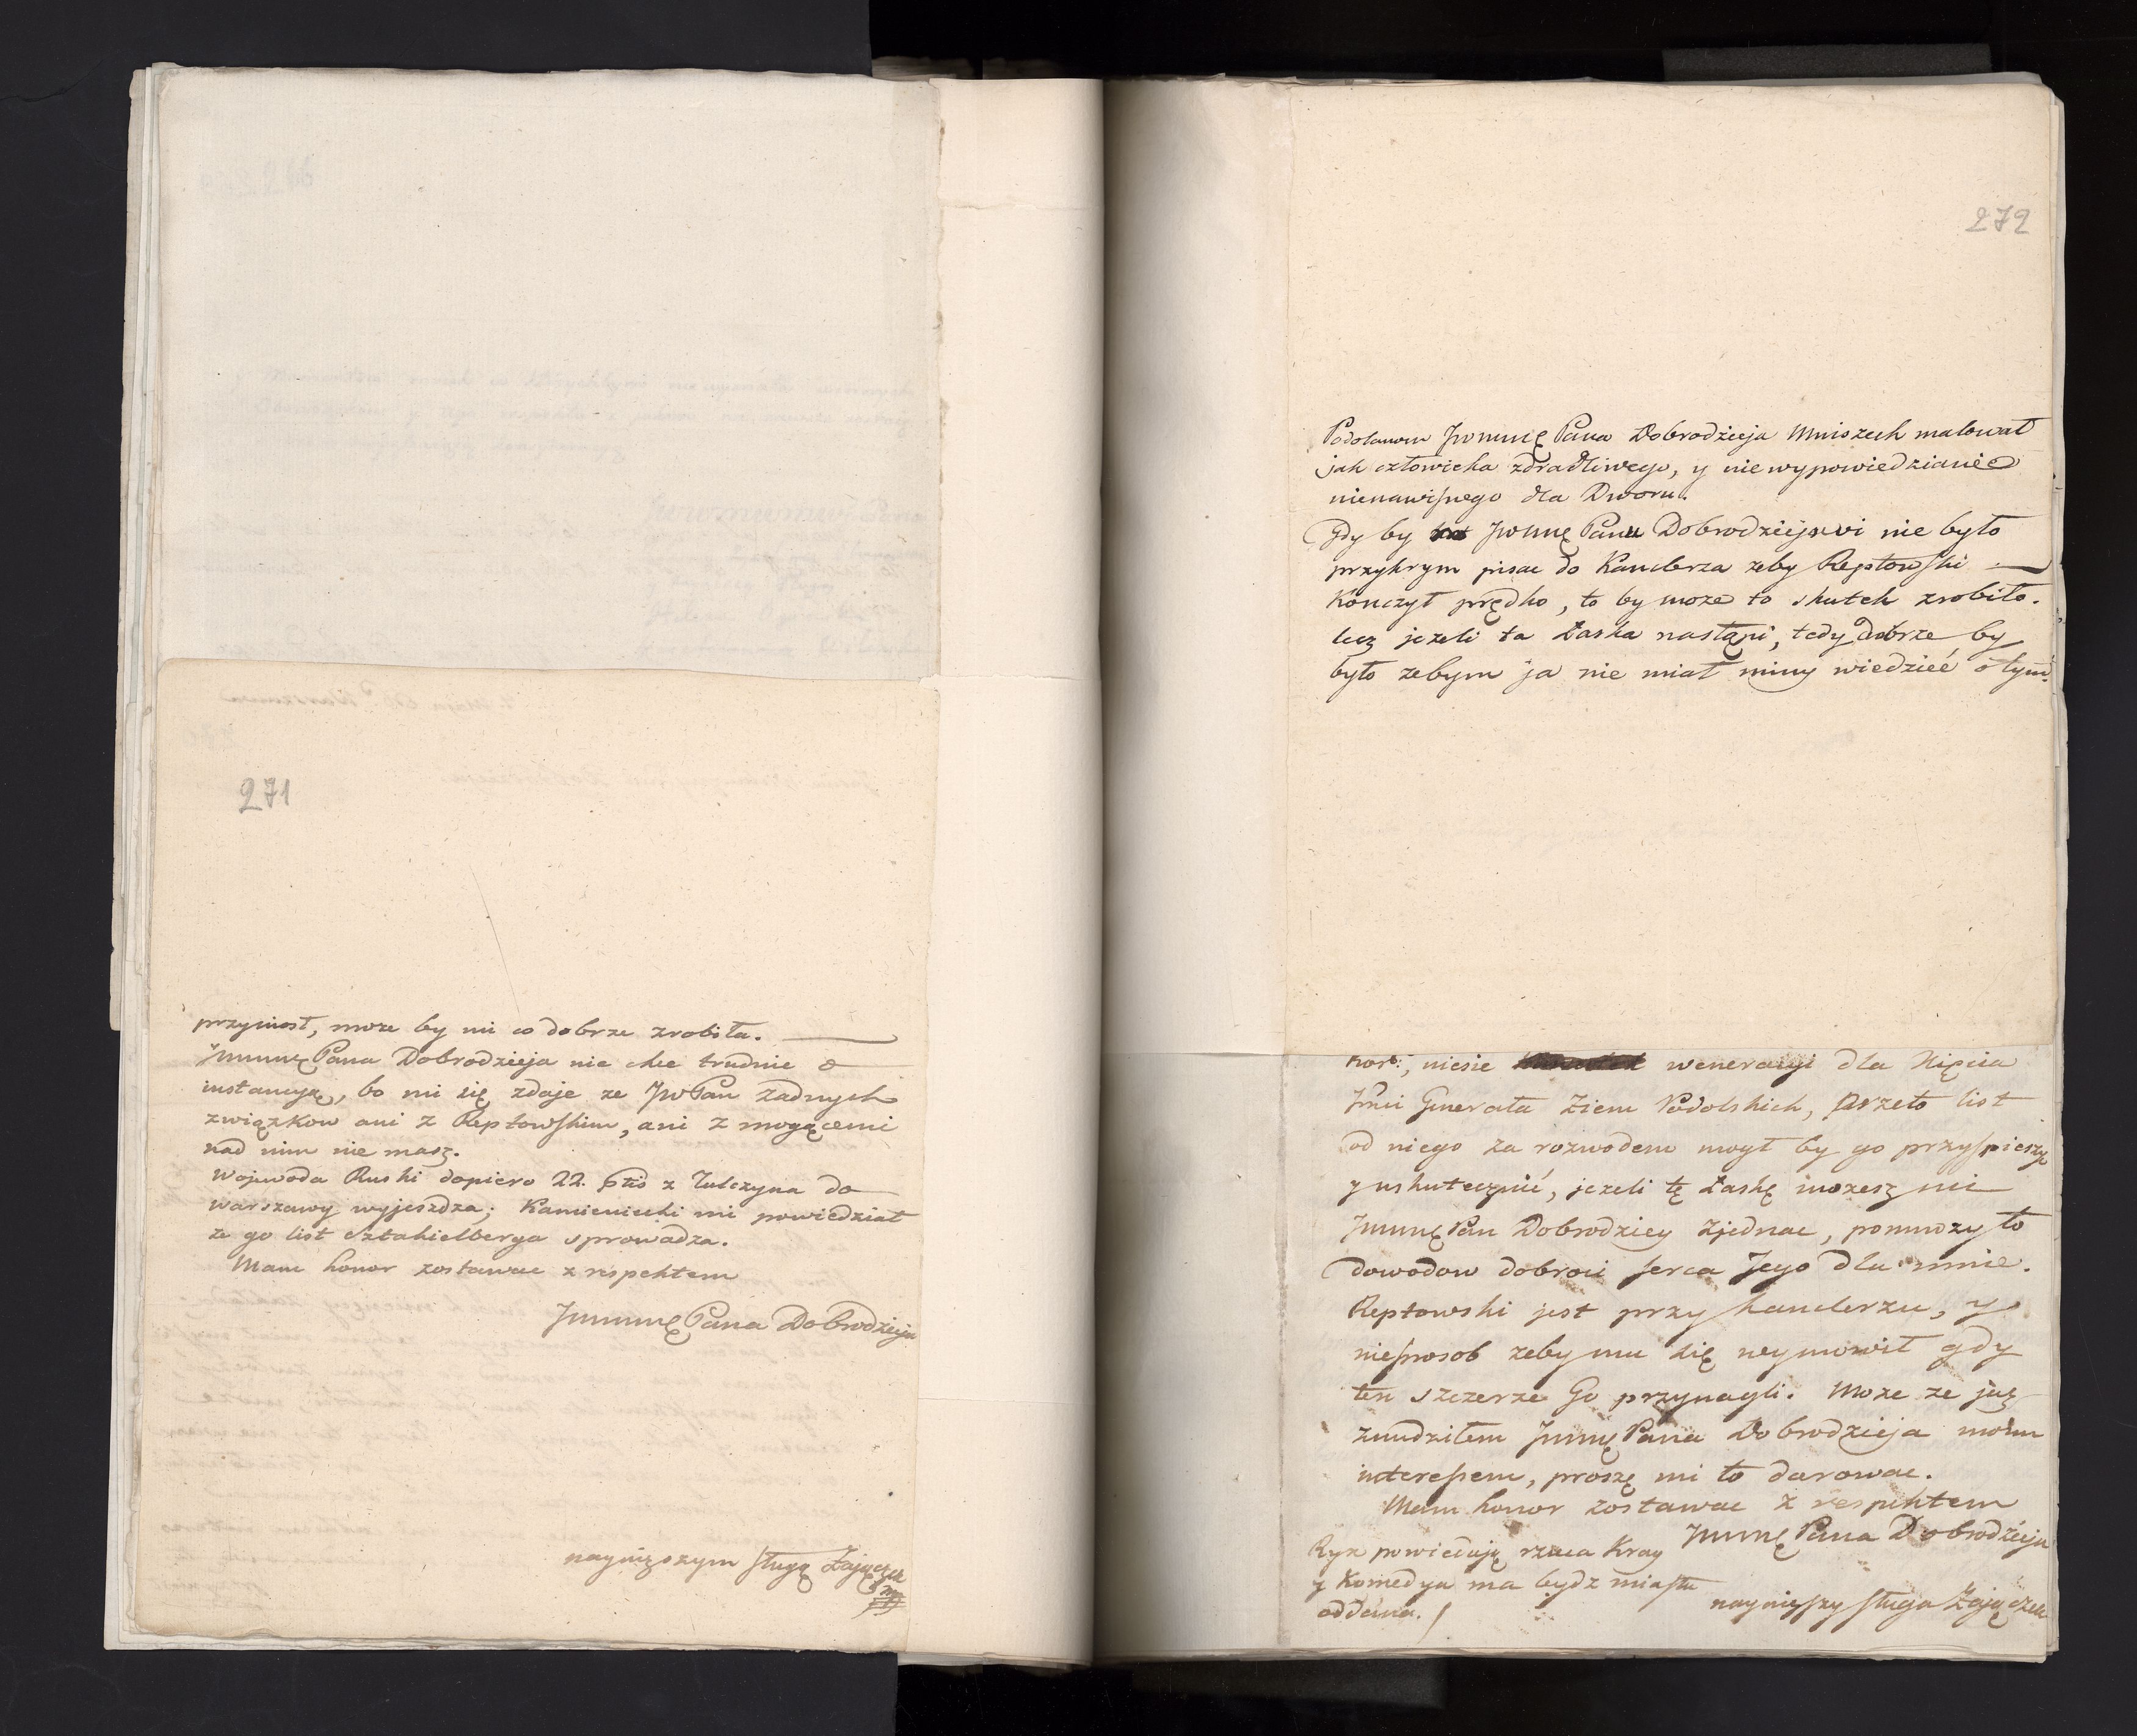 271
przyniosł, może by mi co dobrze zrobiła.
Pana Dobrodzieja nie chce trudnic o
instancyę, bo mi się zdaje ze JWPan zadnych
związkow ani z Reptowskim, ani z mogącemi
nad nim nie masz.
Wojewoda Ruski dopiero 22. z Tulczyna do
warszawy wyjeszdza; Kamieniecki mi powiedział
ze go list sztakielberga sprowadza.
Mam honor zostawac z respektem
Pana Dobrodzieja
nayniższym sługą Zajączek
272
Pana Dobrodzieja Mniszech malował
jak człowieka zdradliwego, y niewypowiedzianie
nienawisnego dla Dworu.
Gdy by Dobrodziejowi nie było
przykrym pisac do Kanclerza zeby Reptowski
Konczył prędko, to by moze to skutek zrobiło.
lecz jezeli ta Łaska nastąpi, tedy dobrze by
było zebym ja nie miał miny wiedzieć o tym.
Kor:, niesie weneracyi dla Xięcia
Jmci Generała Ziem Podolskich, przeto list
od niego za rozwodem mogł by go przyspieszyc
y uskutecznić, jezeli tę Łaskę mozesz mi
Pan Dobrodziey zjednac, pomnozy to
dowodow dobroci serca Jego dla mnie.
Reptowski jest przy kanclerzu, y
niesposob zeby mu się wymowił gdy
ten szczerze Go przynagli. Moze ze juz
znudziłem Pana Dobrodzieja moim
interessem, proszę mi to darowac.
Mam honor zostawac z respektem
Pana Dobrodzieja
Ryx powiedają rzuca Kray
y Komedya ma bydz miastu
oddana.
nayniższy sługa Zajączek